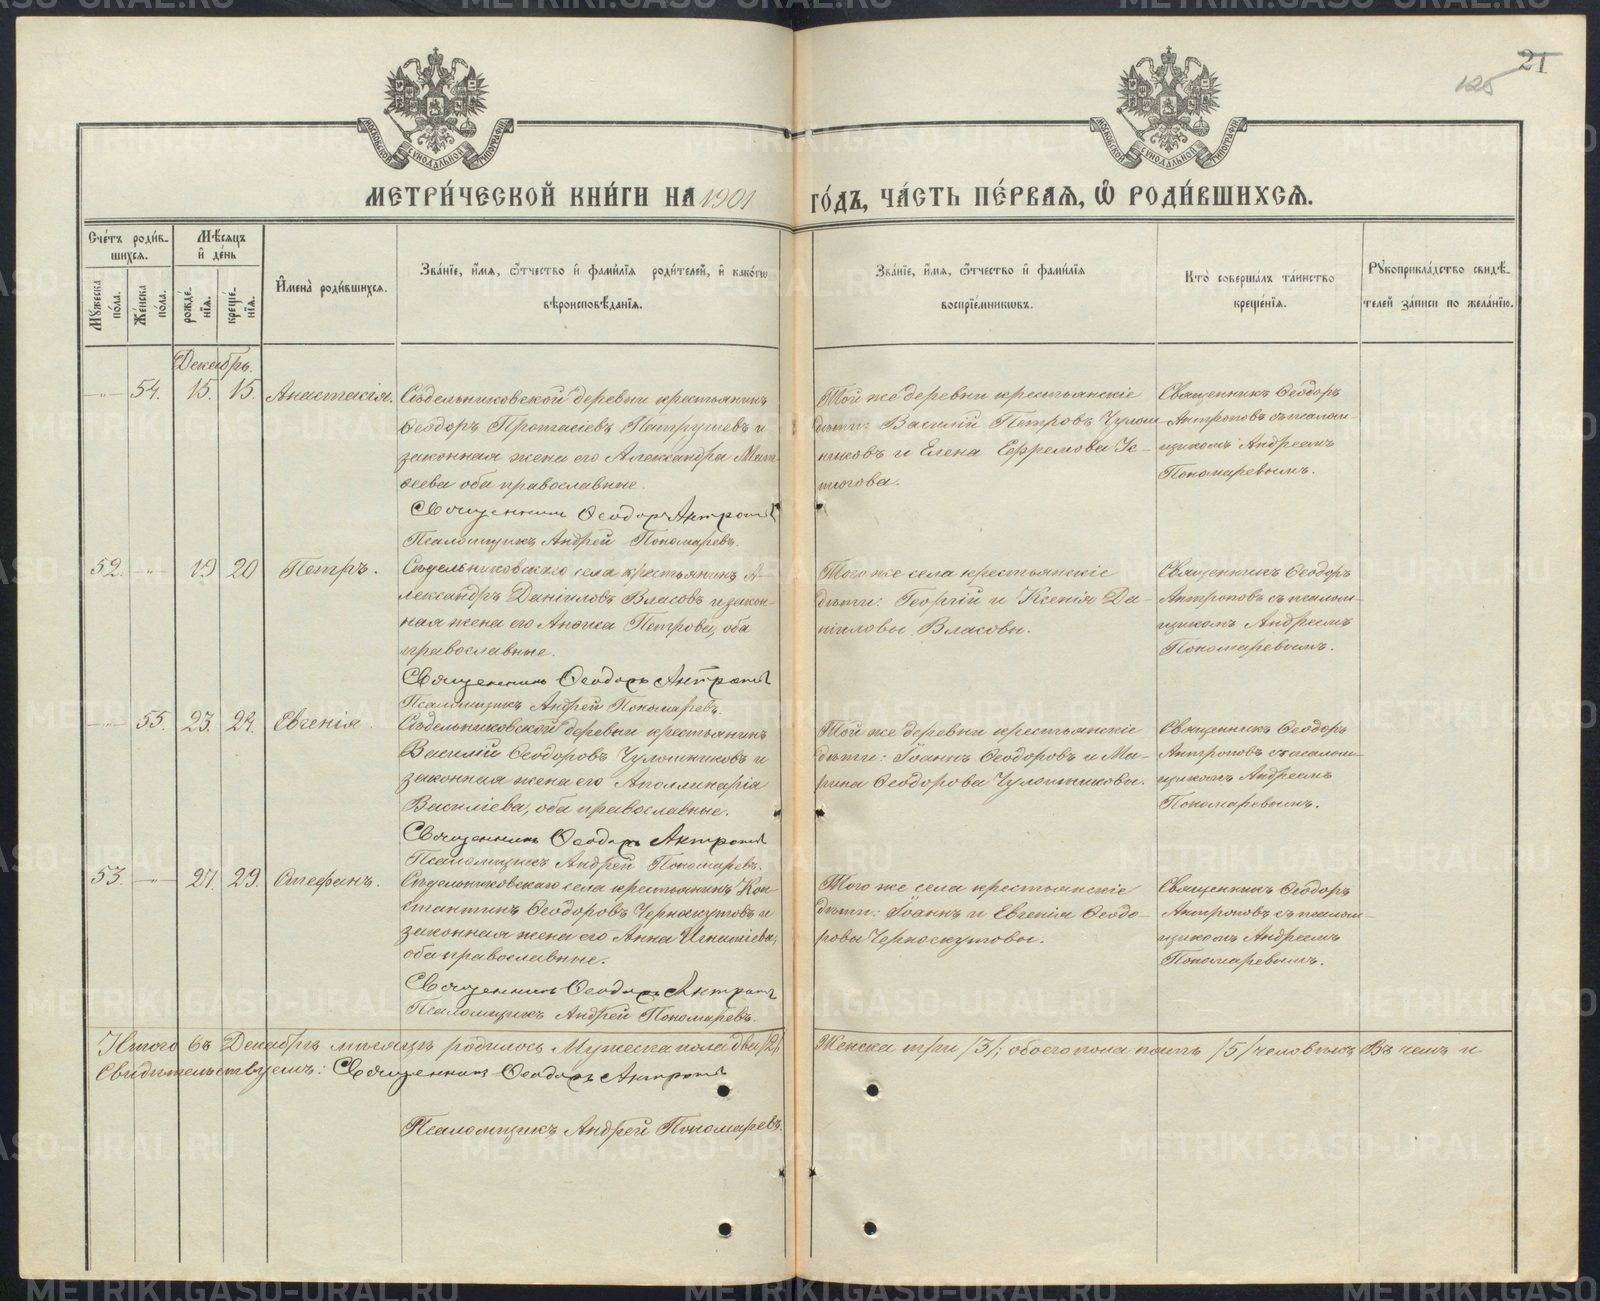 21
125
МОСКОВСКОЙ СѴНОДАЛЬНОЙ ТИПОГРАФІИ
МОСКОВСКОЙ СѴНОДАЛЬНОЙ ТИПОГРАФІИ
МЕТРИ́ЧЕСКОЙ КНИ́ГИ НА 1901 ГО́ДЪ, ЧА́СТЬ ПЕ́РВАЯ, Ѽ РОДИ́ВШИХСЯ.
Сче́тъ роди́в-
шихся.
Мꙋ́жеска по́ла.
Же́нска по́ла.
Мѣ́сяцъ
и҆ де́нь
рожде́-
нїя.
креще́-
нїя.
И҆мена̀ роди́вшихся.
Зва́нїе, и҆́мя, ѻ҆́тчество и҆ фами́лїя роди́телей, и҆ како́гѡ
вѣроисповѣ́данїя.
Зва́нїе, и҆́мя, ѻ҆́тчество и҆ фами́лїя
воспрїе́мниковъ.
Кто̀ соверша́лъ та́инство
креще́нїя.
Рꙋкоприкла́дство свидѣ́-
телей за́писи по жела́нїю.
Декабрь.
-"- 54. 15. 15. Анастасія.
Сѣдельниковской деревни крестьянинъ
Ѳеодоръ Протасіевъ Патрушевъ и
законная жена его Александра Мат-
ѳеева оба православные.
Священникъ Ѳеодоръ Антроповъ
Псаломщикъ Андрей Пономаревъ.
Той же деревни крестьянскіе
дѣти: Василій Петровъ Чулош-
никовъ и Елена Ефремова Ус-
тюгова.
Священникъ Ѳеодоръ
Антроповъ съ псалом-
щикомъ Андреемъ
Пономаревымъ.
52. -"- 19 20 Петръ.
Сѣдельниковскаго села крестьянинъ А-
лександръ Даніиловъ Власовъ и закон-
ная жена его Анфиса Петрова, оба
православные.
Священникъ Ѳеодоръ Антроповъ
Псаломщикъ Андрей Пономаревъ.
Того же села крестьянскіе
дѣти: Георгій и Ксенія Да-
ніиловы Власовы.
Священникъ Ѳеодоръ
Антроповъ съ псалом-
щикомъ Андреемъ
Пономаревымъ.
-"- 55. 23. 24. Евгенія.
Сѣдельниковской деревни крестьянинъ
Василій Ѳеодоровъ Чулошниковъ и
законная жена его Аполлинарія
Василіева, оба православные.
Священникъ Ѳеодоръ Антроповъ
Псаломщикъ Андрей Пономаревъ.
Той же деревни крестьянскіе
дѣти: Іоаннъ Ѳеодоровъ и Ма-
рина Ѳеодорова Чулошниковы.
Священникъ Ѳеодоръ
Антроповъ съ псалом-
щикомъ Андреемъ
Пономаревымъ.
53. -"- 27. 29. Стефанъ.
Сѣдельниковскаго села крестьянинъ Кон-
стантинъ Ѳеодоровъ Черноскутовъ и
законная жена его Анна Игнатіева,
оба православные.
Священникъ Ѳеодоръ Антроповъ
Псаломщикъ Андрей Пономаревъ.
Того же села крестьянскіе
дѣти: Іоаннъ и Евгенія Ѳеодо-
ровы Черноскутовы.
Священникъ Ѳеодоръ
Антроповъ съ псалом-
щикомъ Андреемъ
Пономаревымъ.
Итого въ Декабрѣ мѣсяцѣ родилось Мужеска пола два /2/, Женска три /3/; обоего пола пять /5/ человѣкъ Въ чемъ и
Свидѣтельствуемъ: Священникъ Ѳеодоръ Антроповъ
Псаломщикъ Андрей Пономаревъ.
METRIKI.GASO-URAL.RU